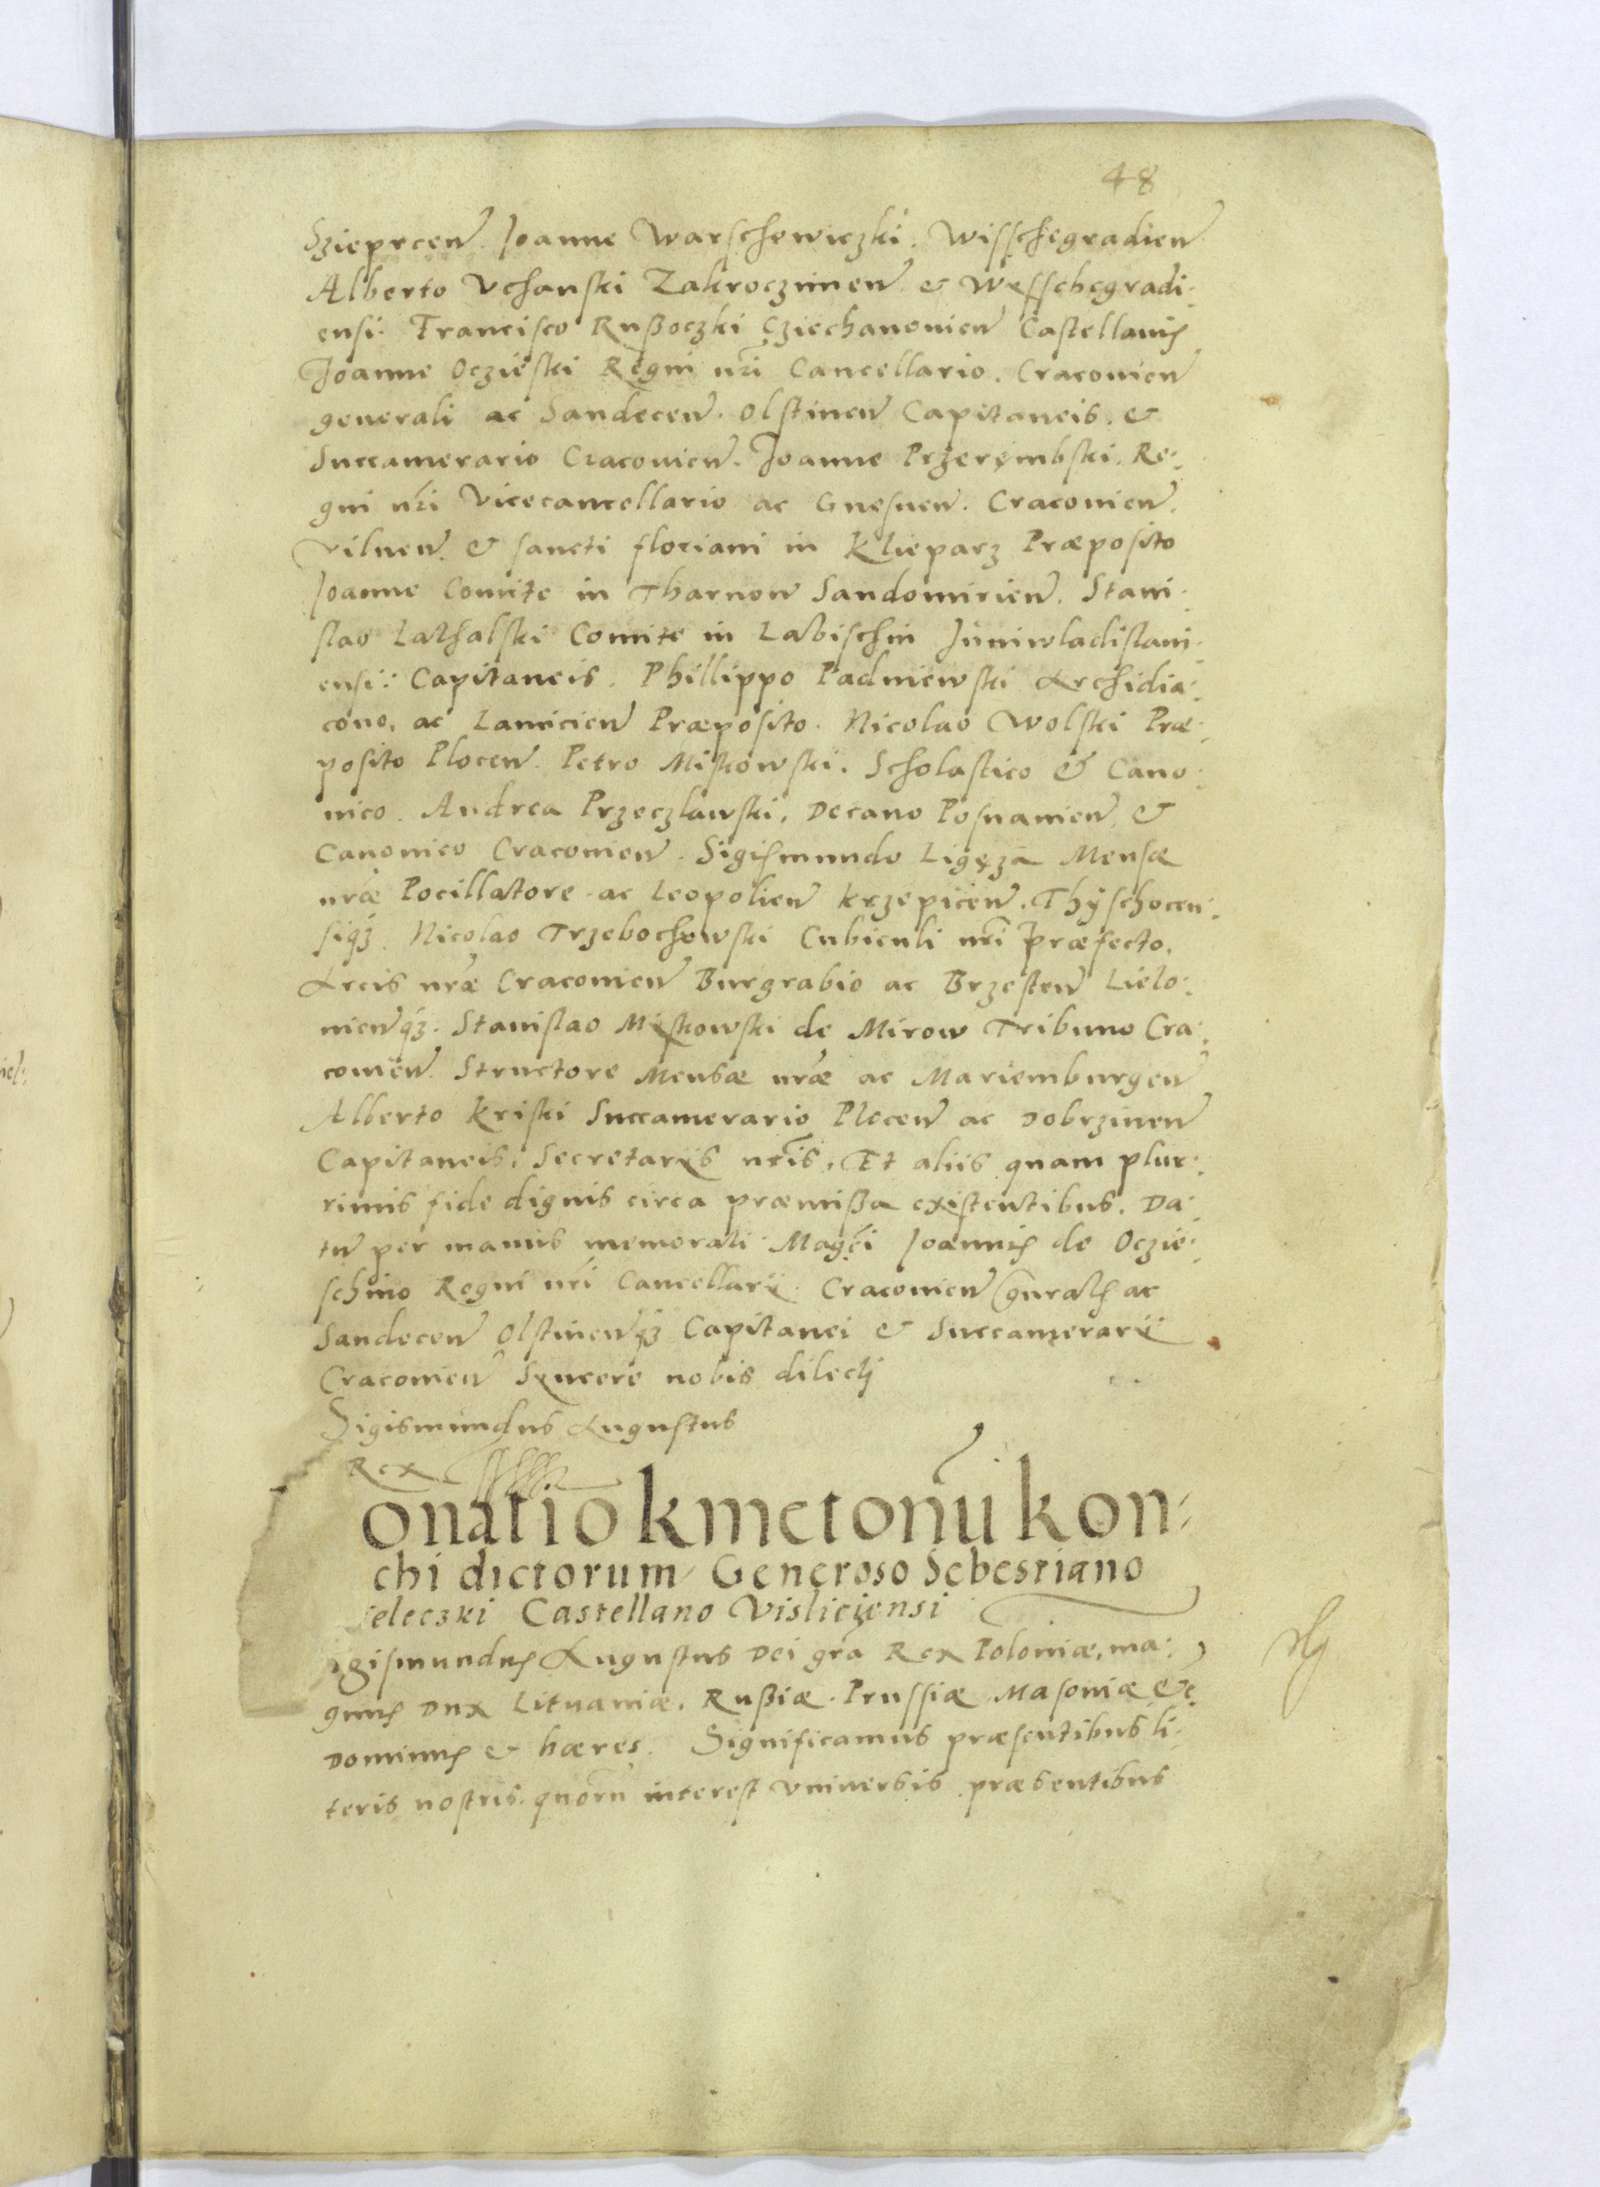 48
Szieprcen. Joanne Warschewiczki. Wisschegradien
Alberto Vchanski Zakroczimen & Wyßchegradi:
ensi: Francisco Rußoczki Cziechanouien Castellanis
Joanne Oczieski Regni nri Cancellario. Cracouien
generali ac Sandecen. Olstinen Capitaneis. &
Succamerario Cracouien. Joanne Przerembski. Re:
gni nri Vicecancellario ac Gnesnen. Cracouien.
Vilnen. & sancti floriani in Klieparz Præposito
Joanne Comite in Tharnow Sandomirien. Stani:
slao Lathalski Comite in Labischin Juniwladislaui:
ensi: Capitaneis. Phillippo Padniewski Archidia:
cono, ac Lancicien Præposito. Nicolao Wolski Præ:
posito Plocen. Petro Miskowski. Scholastico & Cano:
nico. Andrea Przeczlawski, Decano Posnanien, &
Canonico Cracouien. Sigismundo Ligęza Mensæ
nræ Pocillatore ac Leopolien Krzepicen. Thyschocen:
siqz. Nicolao Trzebochowski Cubiculi nri Præfecto.
Arcis nræ Cracouien Burgrabio ac Brzesten Lielo:
nienqz. Stanislao Myskowski de Mirow Tribuno Cra:
couien. Structore Mensæ nræ ac Mariemburgen
Alberto Kriski Succamerario Plocen ac Dobrzinen
Capitaneis, Secretariis nris, Et aliis quam plur:
rimis fide dignis circa præmißa existentibus. Da:
tu per manus memorati Magci Joannis de Oczie:
schino Regni nri Cancellarii. Cracouien gnralis ac
Sandecen Olstinenqz Capitanei & Succamerarii
Cracouien Syncere nobis dilecti
Sigismundus Augustus
Rex
onatio kmetonu kon:
chi dictorum Generoso Sebestiano
seleczki Castellano Visliciensi
igismundus Augustus Dei gra Rex Poloniæ, ma:
gnus Dux Lituaniæ. Rußiæ. Prussiæ. Masouiæ &c
Dominus & hæres. Significamus præsentibus li:
teris nostris. quoru interest vniuersis præsentibus